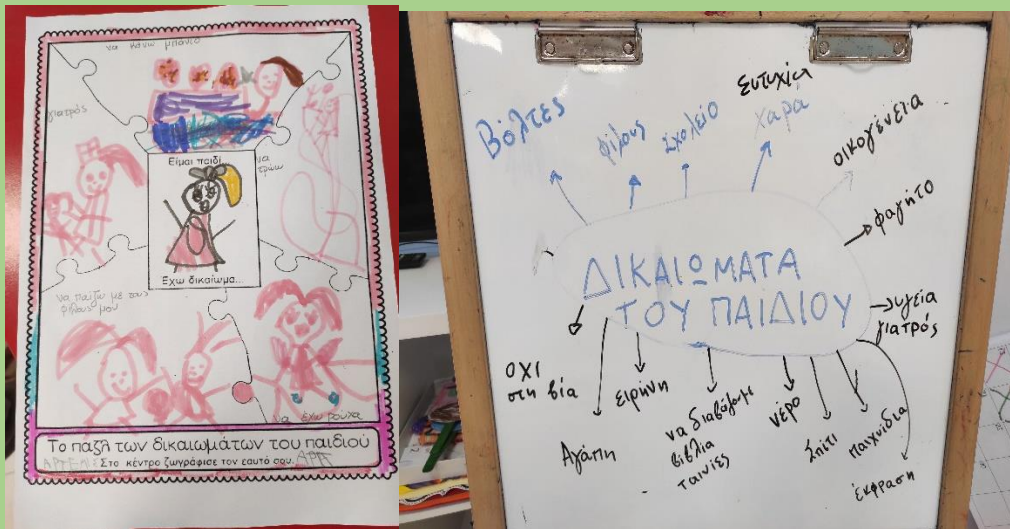 να κάνω μπάνιο
γιατρός
να
τρώω
Είμαι παιδί
Έχω δικαίωμα...
να παίζω με τους
φίλους μου
να έχω ρούχα
Το παζλ των δικαιωμάτων του παιδιού
Στο κέντρο ζωγράφισε τον εαυτό σου.
Βόλτες
φίλους
Σχολείο
Ευτυχία
χαρά
οικογένεια
φαγητό
ΔΙΚΑΙΩΜΑΤΑ
ΤΟΥ ΠΑΙΔΙΟΥ
υγεία
γιατρός
ΟΧΙ
στη βία
Αγάπη
ειρήνη
να διαβάζουμε
βιβλία
ταινίες
νερό
Σπίτι
παιχνίδια
έκφραση